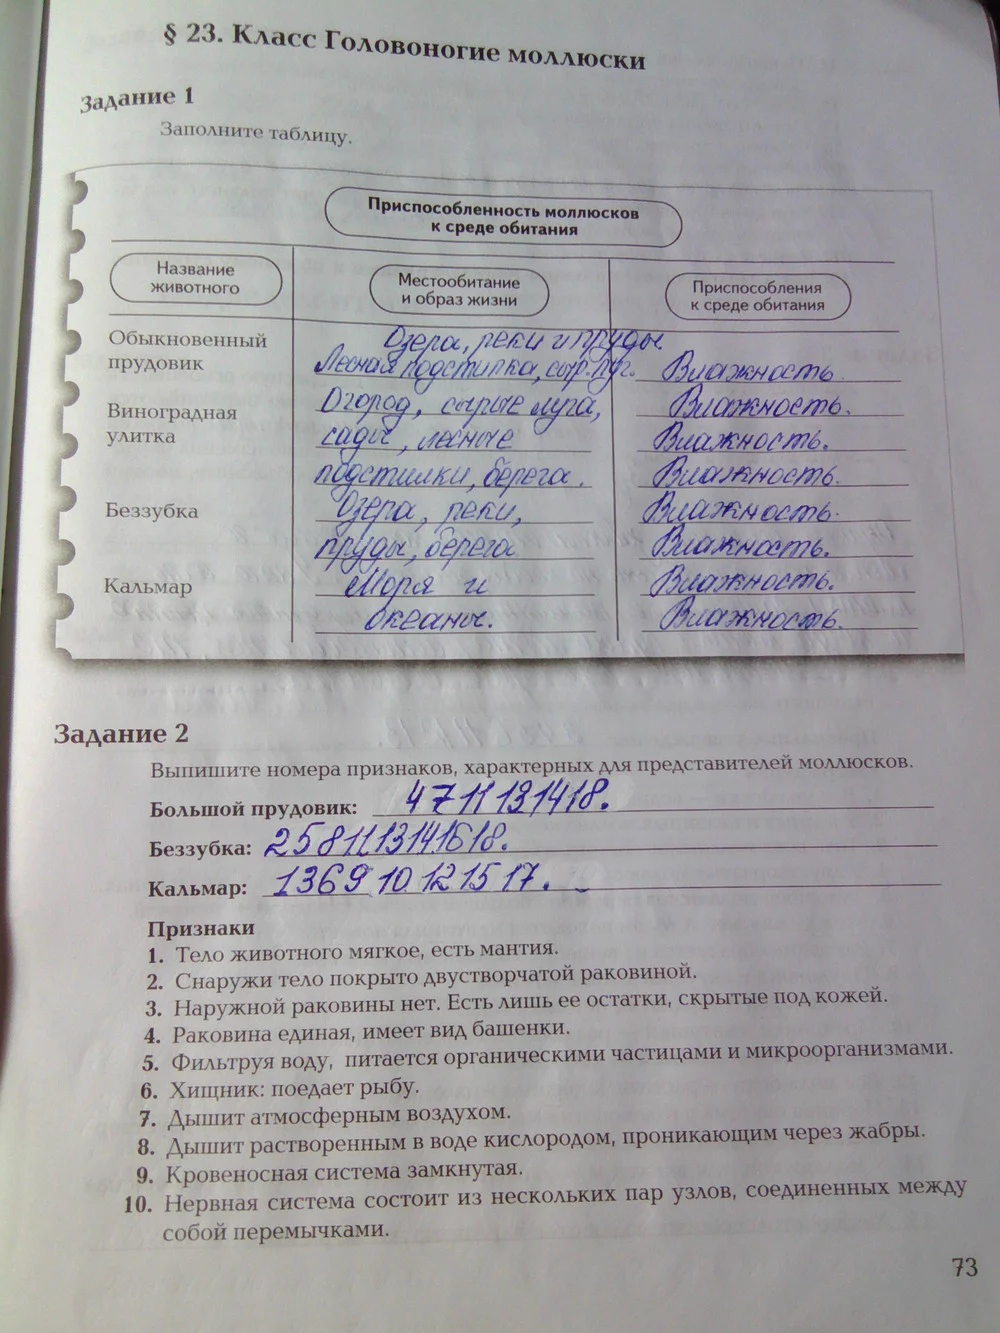 § 23. Класс Головоногие моллюски
Задание 1
Заполните таблицу.
Приспособленность моллюсков
к среде обитания
Название
животного
Местообитание
и образ жизни
Приспособления
к среде обитания
Обыкновенный
прудовик
Озера, реки и пруды.
Лесная подстилка, сыр. луг.
Влажность.
Виноградная
улитка
Огород, сырые луга,
сады, лесные
подстилки, берега.
Влажность.
Влажность.
Влажность.
Беззубка
Озера, реки,
пруды, берега
Влажность.
Влажность.
Кальмар
Моря и
океаны.
Влажность.
Влажность.
Задание 2
Выпишите номера признаков, характерных для представителей моллюсков.
Большой прудовик: 4 7 11 13 14 18.
Беззубка: 2 5 8 11 13 14 16 18.
Кальмар: 1 3 6 9 10 12 15 17.
Признаки
1. Тело животного мягкое, есть мантия.
2. Снаружи тело покрыто двустворчатой раковиной.
3. Наружной раковины нет. Есть лишь ее остатки, скрытые под кожей.
4. Раковина единая, имеет вид башенки.
5. Фильтруя воду, питается органическими частицами и микроорганизмами.
6. Хищник: поедает рыбу.
7. Дышит атмосферным воздухом.
8. Дышит растворенным в воде кислородом, проникающим через жабры.
9. Кровеносная система замкнутая.
10. Нервная система состоит из нескольких пар узлов, соединенных между
собой перемычками.
73